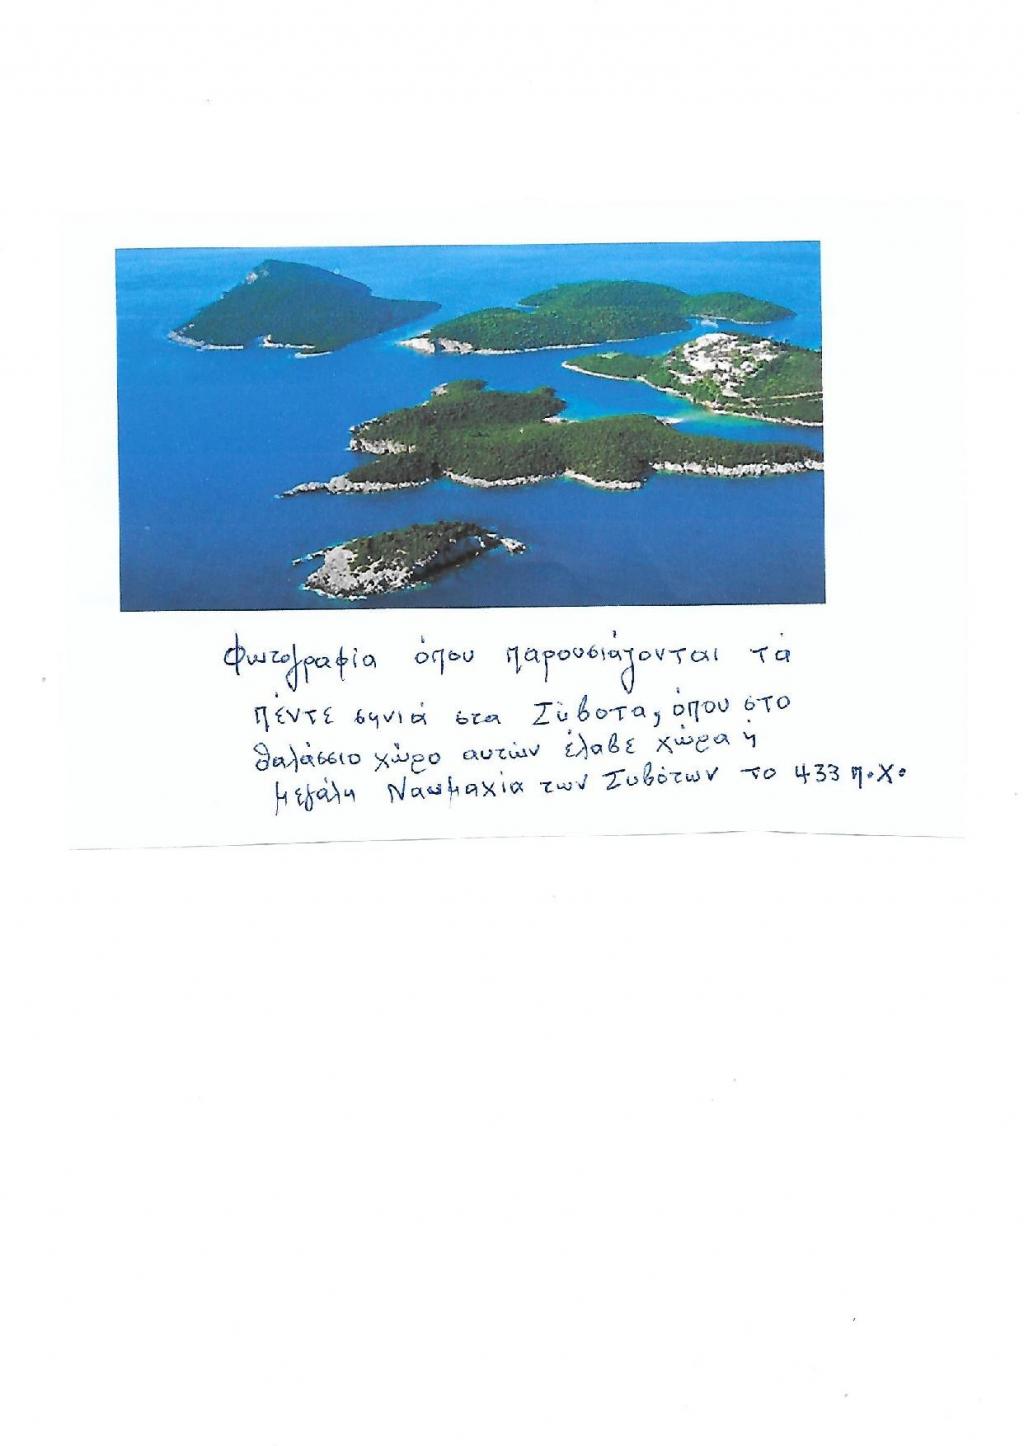 Φωτογραφία όπου παρουσιάζονται τά
πέντε νησιά στα Σύβοτα, όπου στο
θαλάσσιο χώρο αυτών έλαβε χώρα ή
μεγάλη Ναυμαχία των Συβότων το 433 π.Χ.